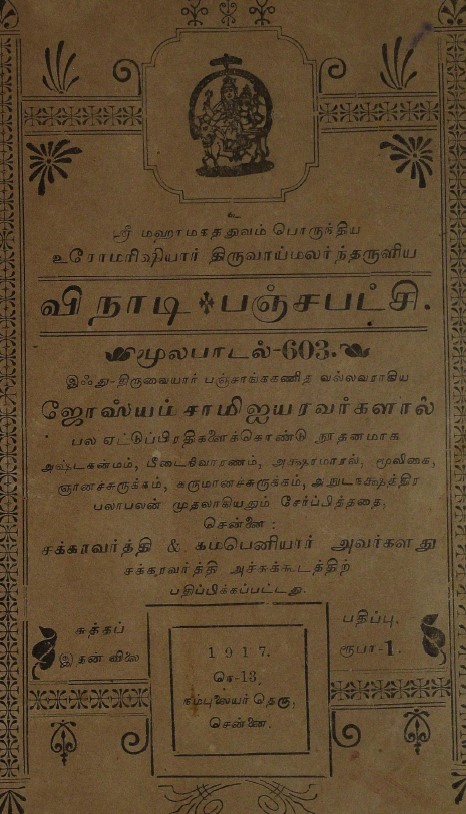 உ
ஸ்ரீ மஹாமகத்துவம் பொருந்திய
உரோமரிஷியார் திருவாய்மலர்ந்தருளிய
விநாடி பஞ்சபட்சி.
மூலபாடல்-603.
இஃது-திருவையார் பஞ்சாங்ககணித வல்லவராகிய
ஜோஸ்யம் சாமிஐயரவர்களால்
பல ஏட்டுப்பிரதிகளைக்கொண்டு நூதனமாக
அஷ்டகன்மம், பீடைநிவாரணம், மூலிகை,
ஞானச்சுருக்கம், கருமானச்சுருக்கம்,
பலாபலன் முதலாகியதும் சேர்ப்பித்ததை,
சென்னை:
சக்காவர்த்தி & கம்பெனியார் அவர்களது
சக்காவர்த்தி அச்சுக்கூடத்திற்
பதிப்பிக்கப்பட்டது.
சுத்தப் பதிப்பு.
இதன் விலை ரூபா-1.
1917.
13,
தெரு,
சென்னை.